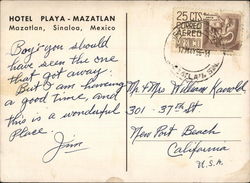 HOTEL PLAYA - MAZATLAN
Mazatlan, Sinaloa, Mexico
Boy! you should
have seen the one
that got away.
But I am having
a good time, and
this is a wonderful
Place.
Jim
25 CTS
AEREO
Mr & Mrs William Kawold
301 - 37th St
New Port Beach
California
U.S.A.